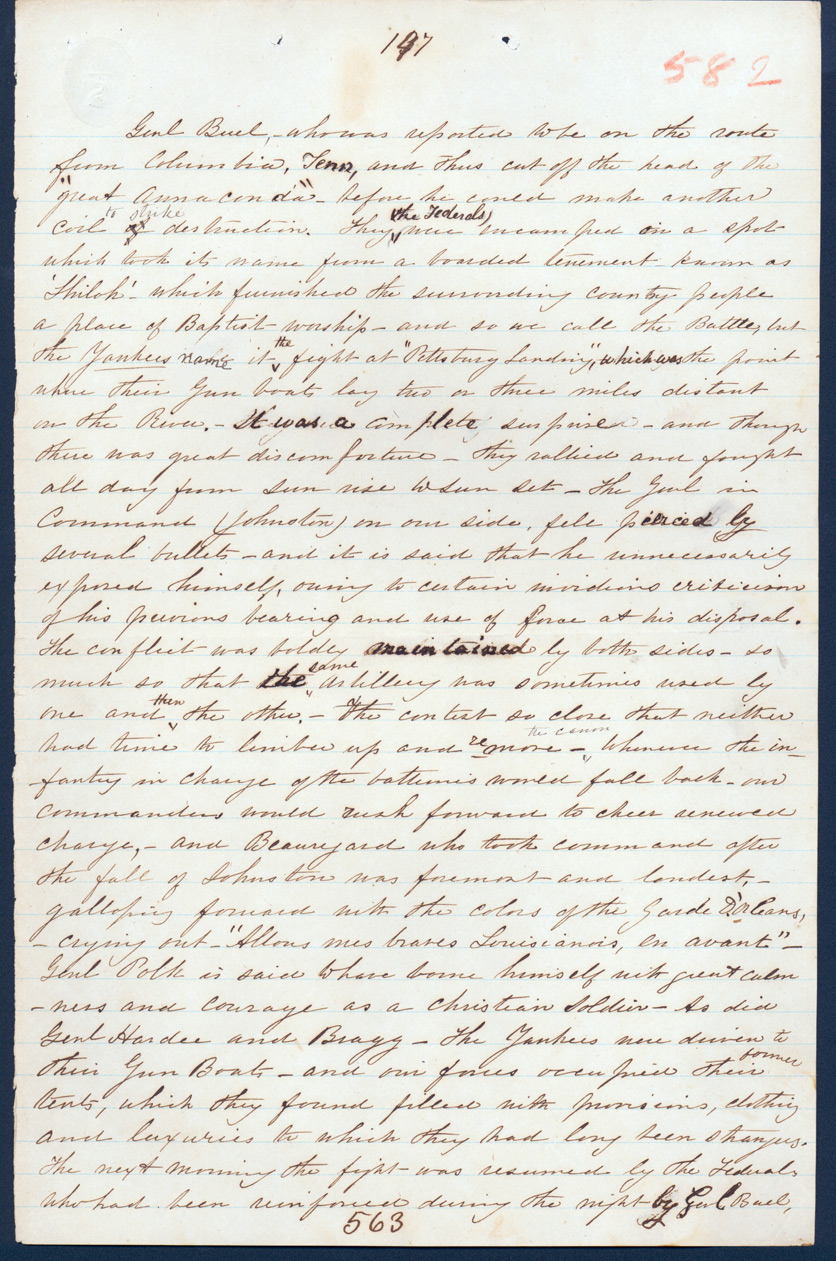 197
582
Genl Buel, - who was reported to be on the route
from Columbia, Tenn, and thus cut off the head of the
"great Annaconda" - before he could make another
coil to strike destruction. They (the Federals) were incamped on a spot
which took its name from a boarded tenement known as
'Shiloh' - which furnished the surrounding country people
a place of Baptist worship - and so we call the Battle, but
the Yankees name it the fight at "Pittsburg Landing", which was the point
where their Gun boats lay two or three miles distant
on the River. - It was a complete surprise - and though
there was great discomforture - they rallied and fought
all day from sun rise to sun set - The Genl in
Command (Johnston) on our side, fell pierced by
several bullets - and it is said that he unnecessarily
exposed himself, owing to certain invidious criticism
of his previous bearing and use of force at his disposal.
The conflict was boldly maintained by both sides - so
much so that the same artillery was sometimes used by
one and then the other. - The contest so close that neither
had time to limber up and remove - the canon Whenever the in-
-fantry in charge of the batteries would fall back - our
commanders would rush forward to cheer renewed
charge, - and Beauregard who took command after
the fall of Johnston was foremost and loudest, -
galloping forward with the colors of the Garde D'orleans,
- crying out - "Allons mes braves Louisianois, en avant" -
Genl Polk is said to have borne himself with great calm
-ness and courage as a christian soldier - As did
Genl Hardee and Bragg - The Yankees were driven to
their Gun Boats - and our forces occupied their former
tents, which they found filled with provisions, clothing
and luxuries to which they had long been strangers.
The next morning the fight was resumed by the Federals
who had been reinforced during the night by Genl Buel,
563